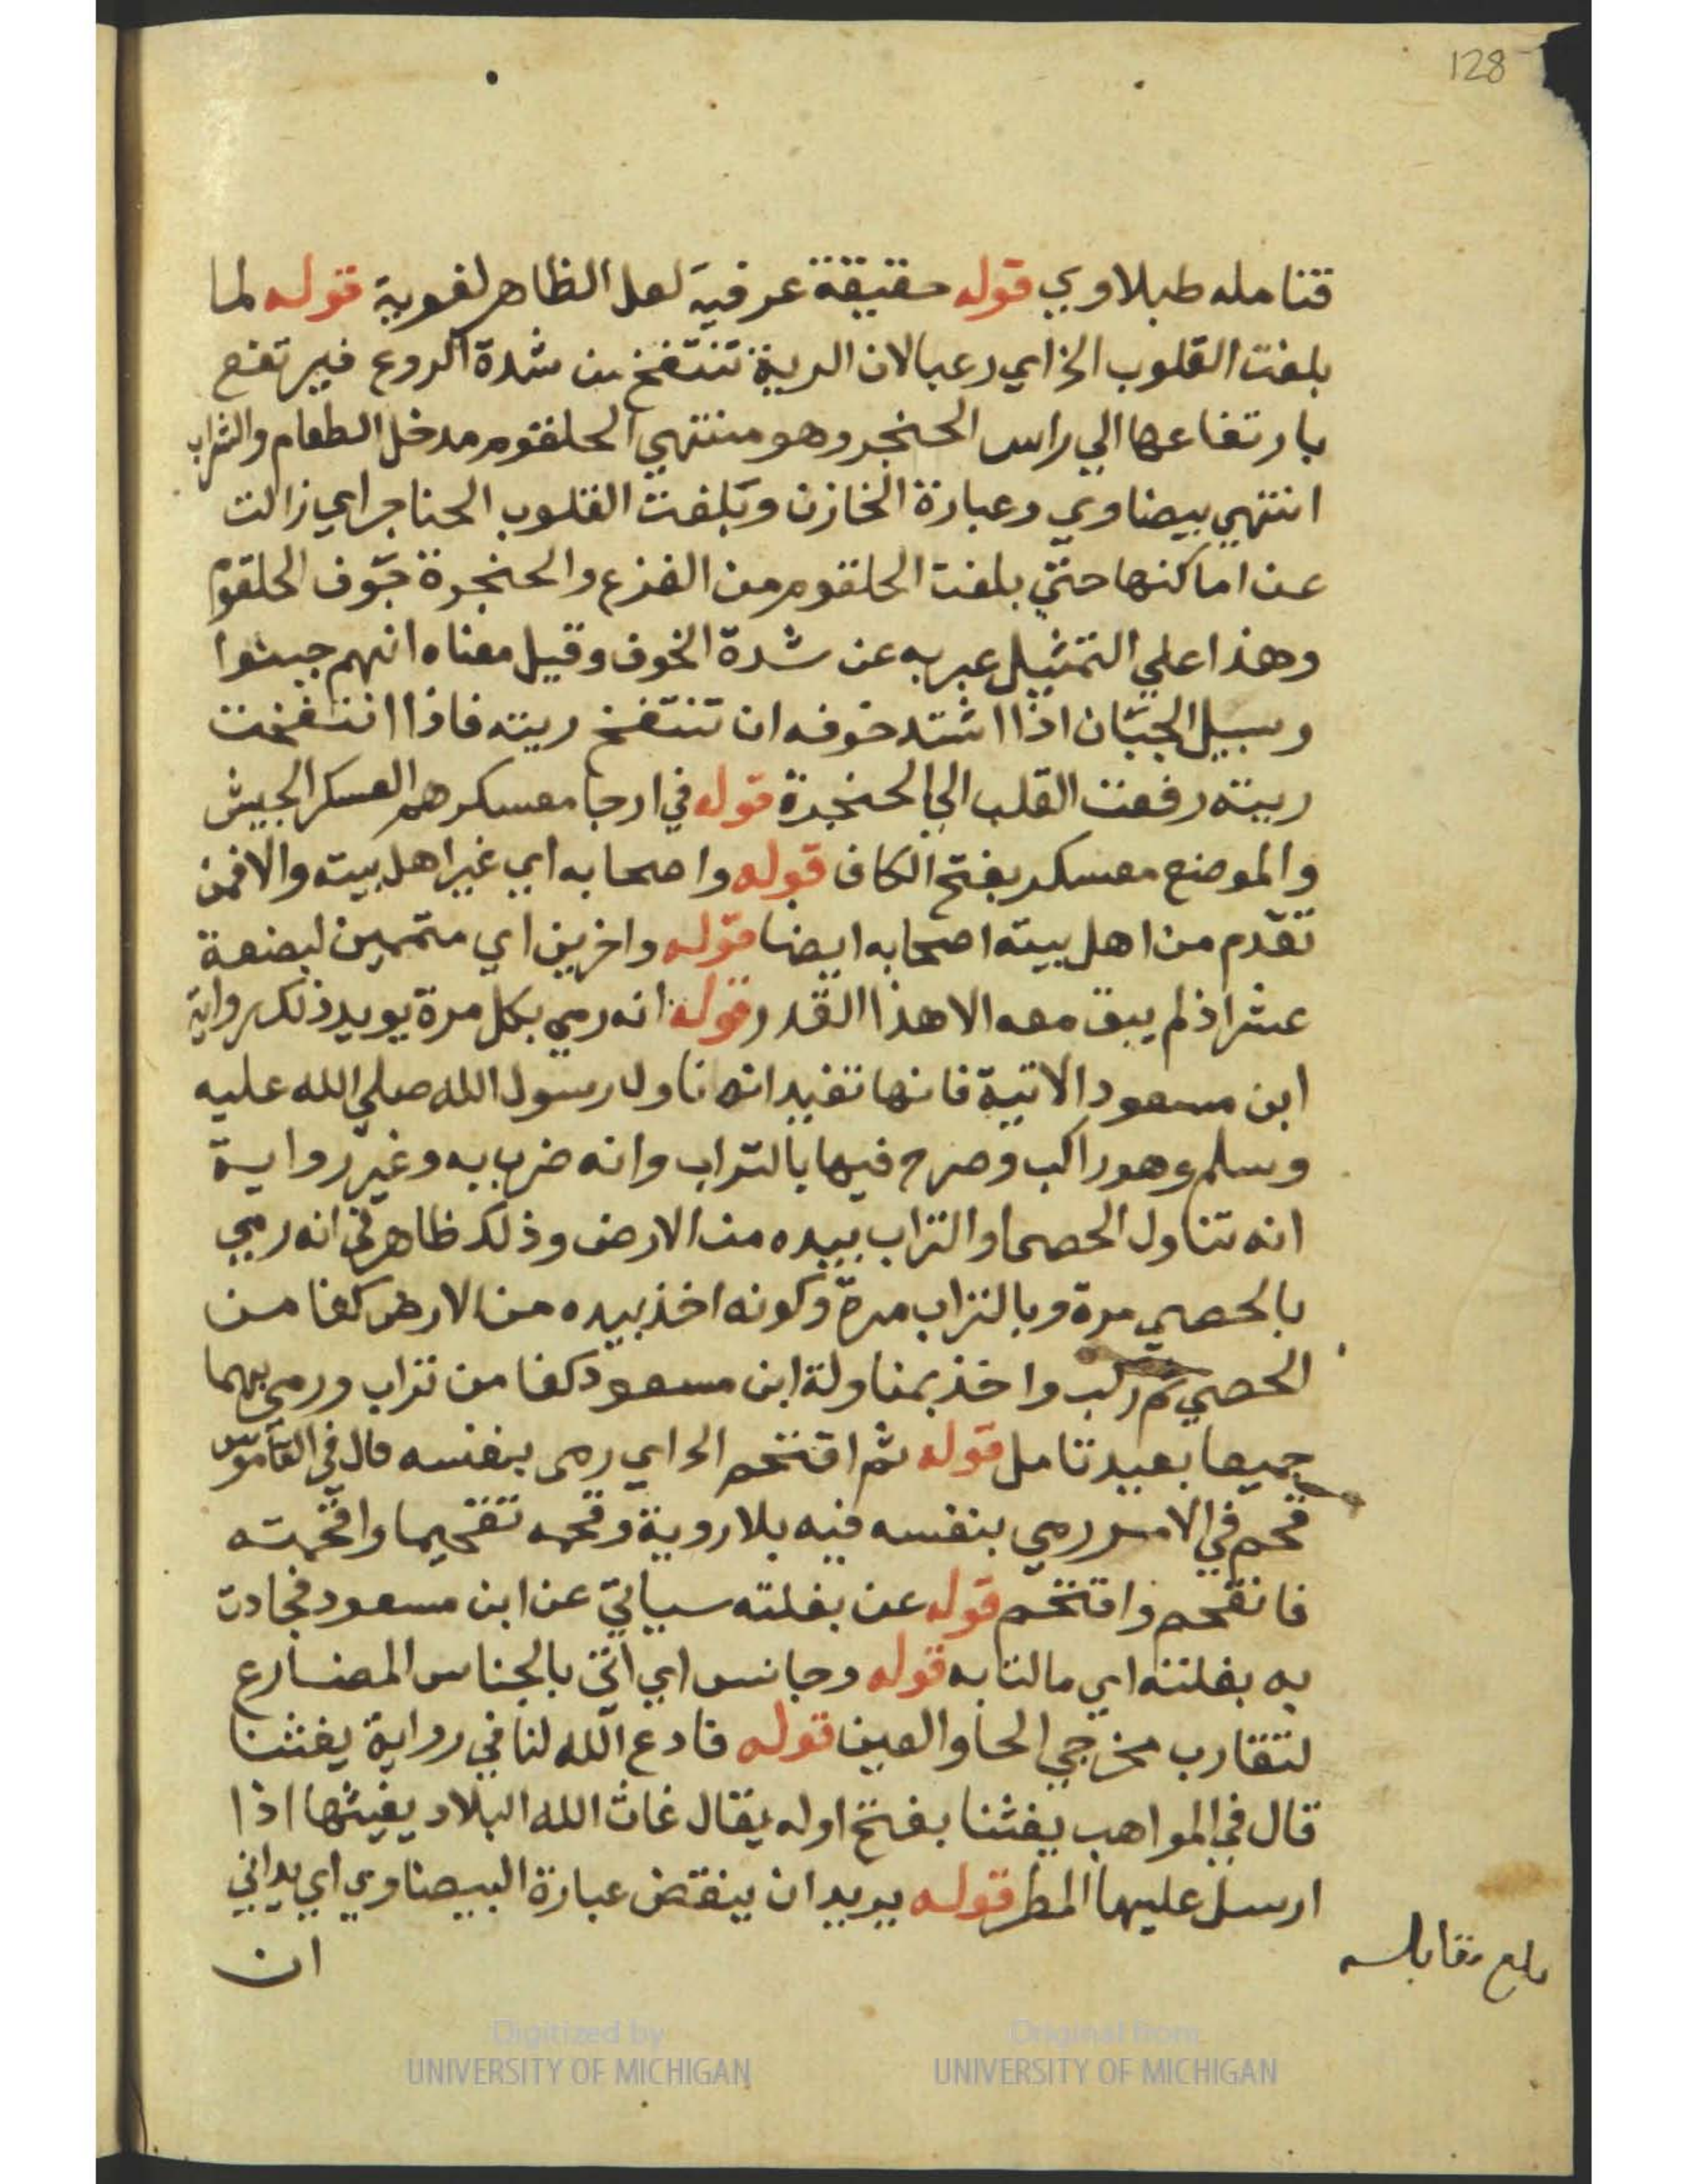 128
فتامله طبلاوي قوله حقيقة عرفية لعل الظاهر لغوية قوله لما
بلغت القلوب الخ اي رعبا لان الرية تنتفخ من شدة الروع فيرتفع
بارتفاعها الي راس الحنجر وهو منتهي الحلقوم مدخل الطعام والشراب
انتهي بيضاوي وعبارة الخازن وبلغت القلوب الحناجر اي زالت
عن اماكنها حتي بلغت الحلقوم من الفزع والحنجرة جوف الحلقوم
وهذا علي التمثيل عبر به عن شدة الخوف وقيل معناه انهم جبنوا
وسبيل الجبان اذا اشتد خوفه ان تنتفخ ريته فاذا انتفخت
ريته رفعت القلب الي الحنجرة قوله في ارجا معسكرهم العسكر الجيش
والموضع معسكر بفتح الكاف قوله واصحابه اي غير اهل بيته والا فمن
تقدم من اهل بيته اصحابه ايضا قوله واخرين اي متممين لبضعة
عشر اذ لم يبق معه الا هذا القدر قوله انه رمي بكل مرة يويد ذلك رواية
ابن مسعود الاتية فانها تفيد انه ناول رسول الله صلي الله عليه
وسلم وهو راكب وصرح فيها بالتراب وانه ضرب به وغير رواية
انه تناول الحصا والتراب بيده من الارض وذلك ظاهر في انه رمي
بالحصي مرة وبالتراب مرة وكونه اخذ بيده من الارض كفا من
الحصي ثم ركب واخذ بمناولة ابن مسعود كفا من تراب ورمي بهما
جميعا بعيد تامل قوله ثم اقتحم الخ اي رمي بنفسه قال في القاموس
قحم في الامر رمي بنفسه فيه بلا روية وقحمه تقحيما واقحمته
فانقحم واقتحم قوله عن بغلته سياتي عن ابن مسعود فحادت
به بغلته اي مالت به قوله وجانس اي اتي بالجناس المضارع
لتقارب مخرجي الحا والعين قوله فادع الله لنا في رواية يغثنا
قال في المواهب يغثنا بفتح اوله يقال غاث الله البلاد يغيثها اذا
ارسل عليها المطر قوله يريد ان ينقض عبارة البيضاوي اي يداني
ان
بلغ مقابلة
Digitized by
UNIVERSITY OF MICHIGAN
Original from
UNIVERSITY OF MICHIGAN